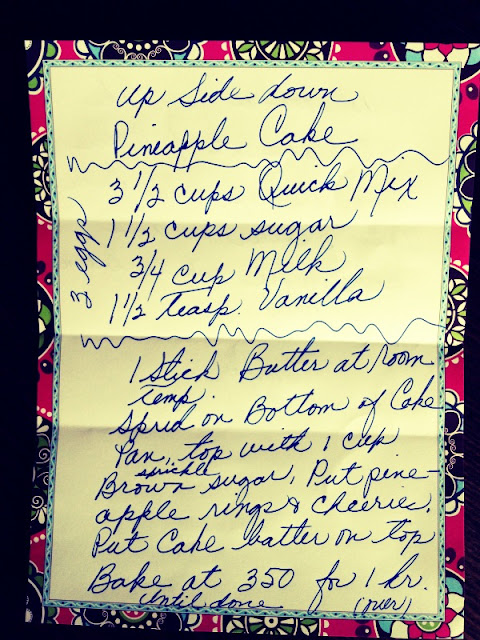 Up Side down
Pineapple Cake
3 1/2 cups Quick Mix
1 1/2 cups sugar
3/4 cup Milk
1 1/2 teasp. Vanilla
3 eggs
1 Stick Butter at room
Temp.
Sprid on Bottom of Cake
Pan, top with 1 cup
sprickle
Brown sugar, Put pine-
apple rings & cheeries.
Put Cake batter on top
Bake at 350 for 1 hr.
until done (over)